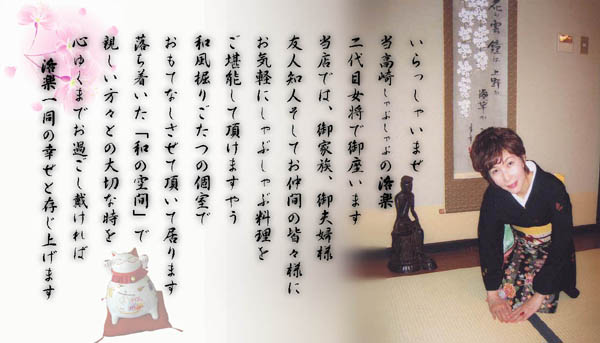 いらっしゃいませ
当高崎しゃぶしゃぶの洛楽
二代目女将で御座います
当店では、御家族、御夫婦様
友人知人そしてお仲間の皆々様に
お気軽にしゃぶしゃぶ料理を
ご堪能して頂けますやう
和風掘りごたつの個室で
おもてなしさせて頂いて居ります
落ち着いた「和の空間」で
親しい方々との大切な時を
心ゆくまでお過ごし戴ければ
洛楽一同の幸せと存じ上げます
花の雲鐘は上野か